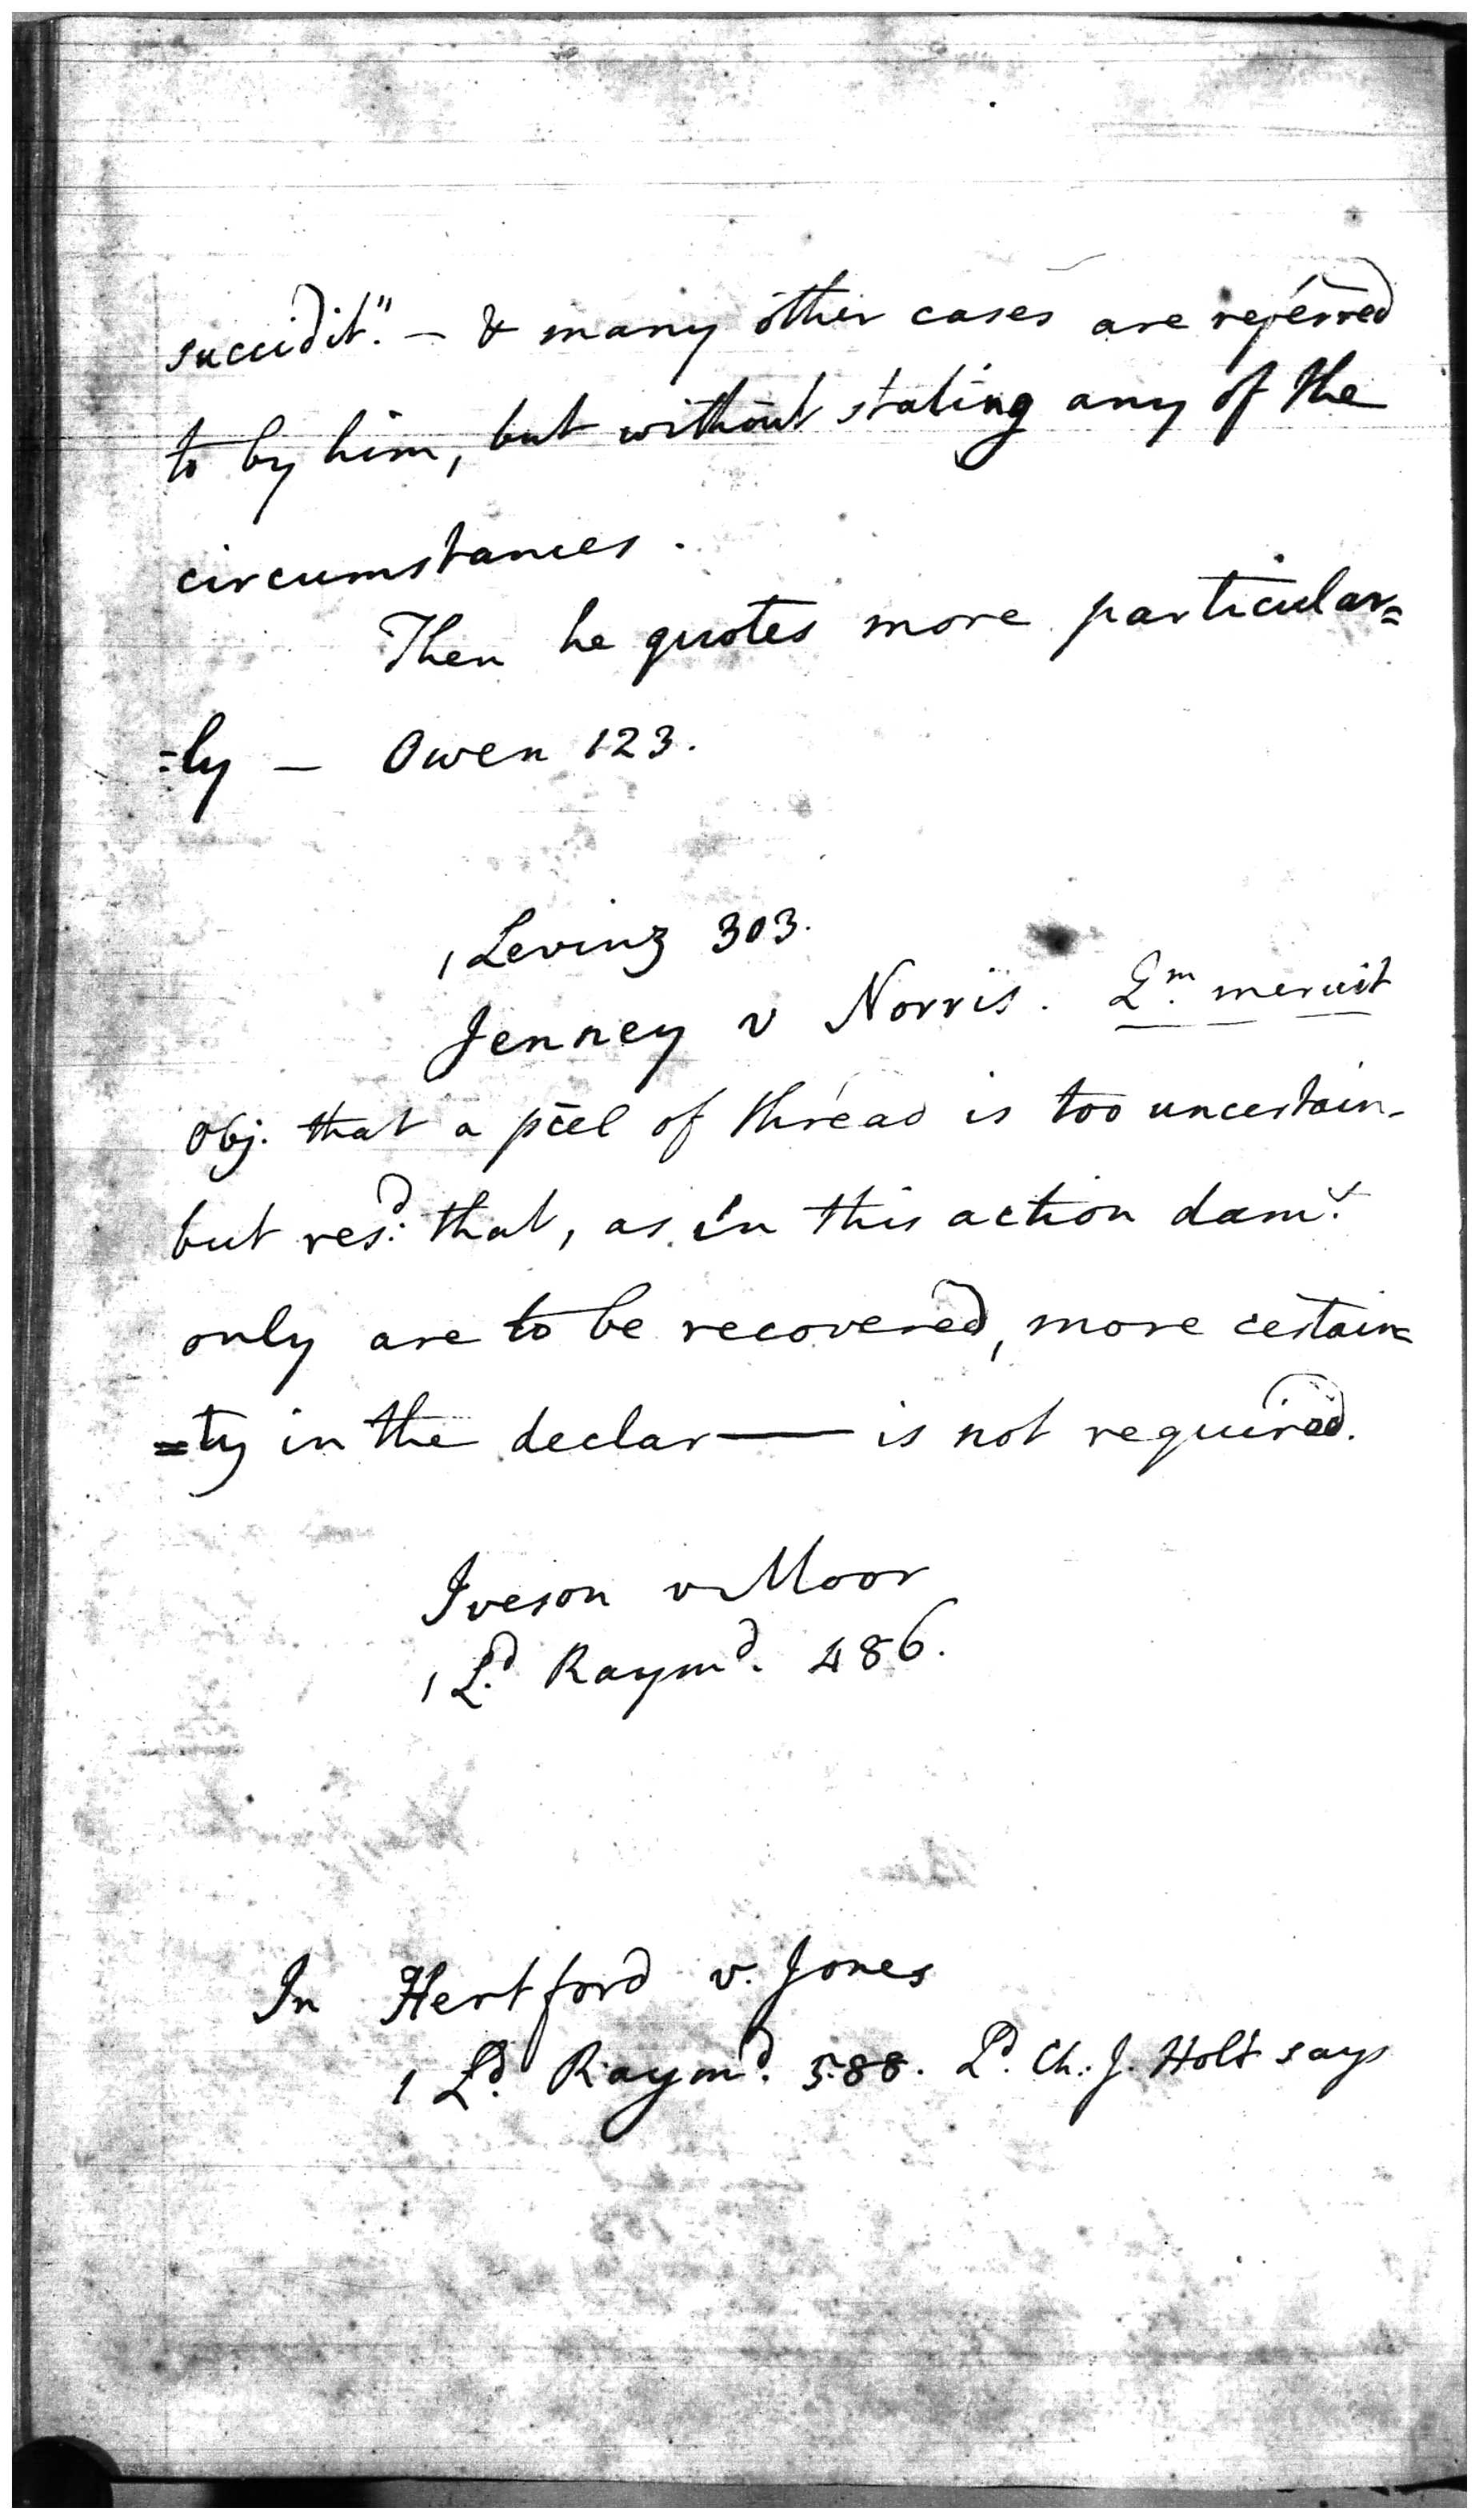 succidit." — & many other cases are referred
to by him, but without stating any of the
circumstances.
Then he quotes more particular=
=ly — Owen 123.
1 Levinz 303.
Jenney v Norris. Qm. meruit
obj. that a pcel of thread is too uncertain-
but resd: that, as in this action dams.
only are to be recovered, more certain=
=ty in the declar—— is not required.
Iveson v Moor
1 Ld. Raymd. 486.
In Hertford v. Jones
1 Ld. Raymd. 588. Ld. Ch: J. Holt says